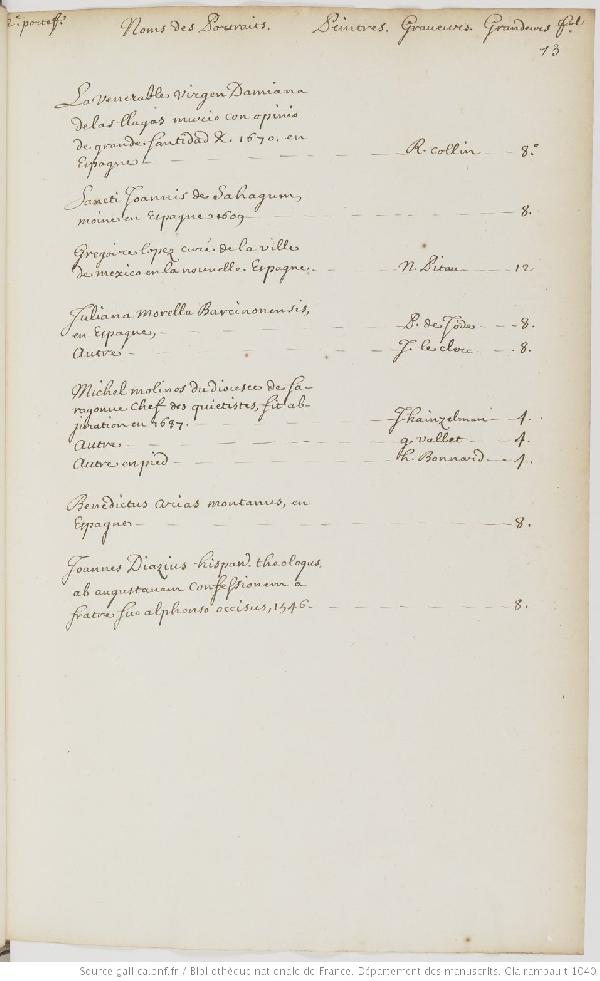 2.e porteff.e Noms des Portraits. Peintres. Graveurs. Grandeurs fol.
13
La Venerable Virgen Damiana
de las llagas murio con opinio
de grande santidad &. 1670. en
Espagne R. Collin 8.o
Sancti Joannis de Sahagum,
moine en Espagne 1609 8.
Gregoire lopez curé de la ville
de mexico en la nouvelle Espagne. N. Pitau 12
Juliana morella Barcinonensis,
en Espagne, P. de Jode 8.
Autre J. le clerc 8.
Michel molinos du diocese de Sa-
ragonne Chef des quietistes, fit ab-
juration en 1687. J. hainzelman 4.
Autre. g. vallet 4.
Autre en pied h. Bonnard 4.
Benedictus arias montanus, en
Espagne 8.
Joannes Diazius hispan. theologus,
ab augustanam Confessionem a
fratre suo alphonso occisus, 1546. 8.
Source gallica.bnf.fr / Bibliothèque nationale de France. Département des manuscrits. Clairambault 1040